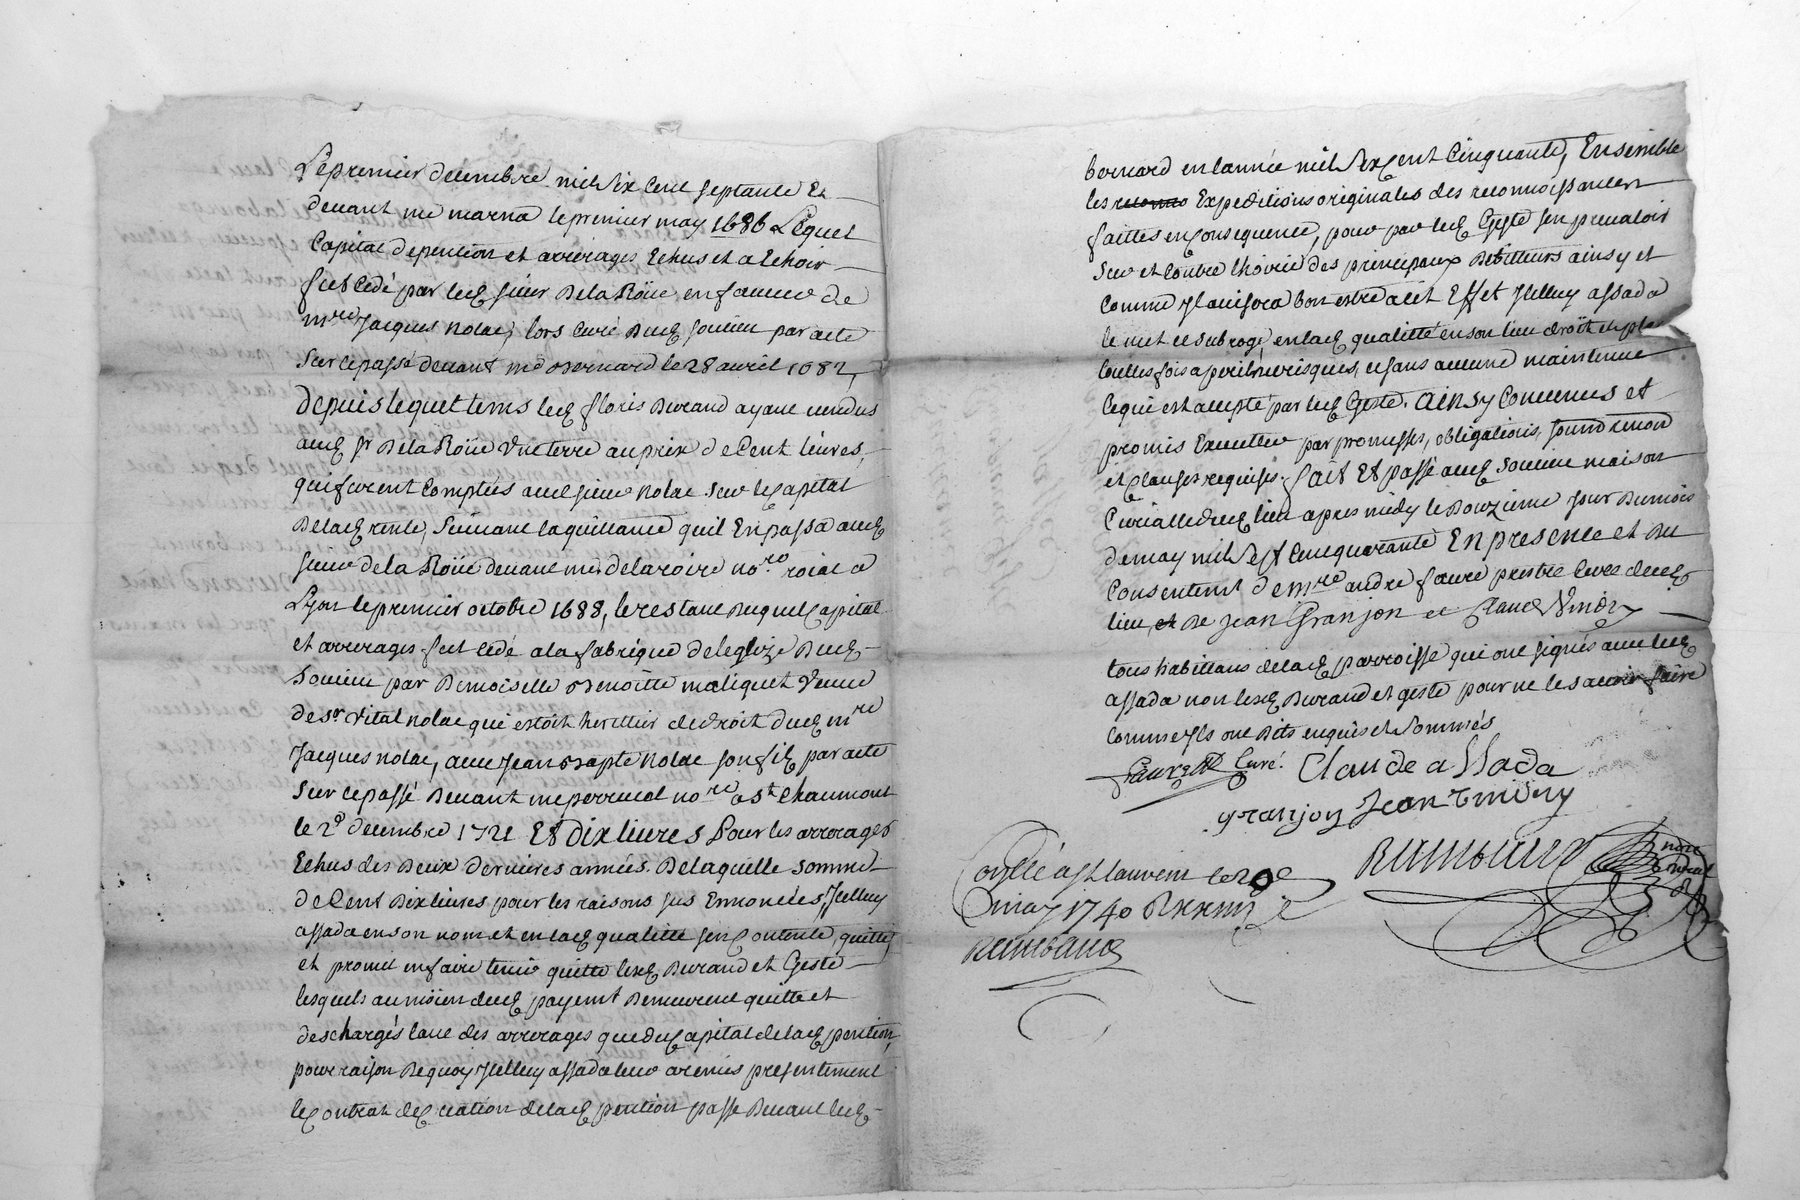 Le premier decembre mil six cent septante Et
devant me marna le premier may 1686 Lequel
Capital de pention et arrerages Echus et a Echoir
fut cedé par led sieur De la Roüe en faveur de
mre Jacques nolac, lors Curé Dud Soucieu par acte
Sur ce passé devant me Bernard le 28 avril 1687,
Depuis lequel tems led floris Durand ayant vendus
aud sr De la Roüe Une terre au prix de Cent livres,
qui furent Comptés aud sieur nolac sur le Capital
De lad rente, Suivant la quittance quil En passa aud
sieur de la Roüe devant me delaroire nore roial a
Lyon le premier octobre 1688, le restant Duquel Capital
et arrerages fut cedé a la fabrique de leglize Dud
Soucieu par Dimoiselle Benoitte maliquet Veuve
de sr Vital nolac qui estoit heritier de droit dud mre
Jacques nolac, avec Jean Bapte nolac son fils par acte
Sur ce passé Devant me perrucol nore a St Chaumont
le 2e decembre 1721 Et Dix livres Pour les arrerages
Echus des Deux dernieres années. De laquelle somme
de Cent Dix livres pour les raisons sus Ennoncées, Icelluy
assada en son nom et en lad qualitté sen Contente, quitte,
et promet en faire tenir quitte lesd Durand et Geste
lesquels au moïen dud payemt Demeurent quitte et
deschargés tant des arrerages que du Capital de lad pention,
pour raison De quoy Icelluy assada leur a remis presentement
le Contrat de Creation de lad pention passé Devant led
bernard en lannée mil six Cent Cinquante, Ensemble
les Expeditions originales des reconnoissances
faittes en Consequence, pour par led Geste sen prevaloir
Sur et Contre lhoirie des principaux Debitteurs ainsy et
Comme Il avisera bon estre a cet Effet Icelluy assada
le met et subroge en lad qualitté en son lieu droit et place
touttesfois a peril, risques, et sans aucune maintenue
Ce qui est accepté par led Geste. Ainsy Convenus et
promis Executter par promesses, obligations,
et Clauses requises. fait Et passé aud Soucieu maison
Curialle dud lieu apres midy le Douzieme Jour Du mois
de may mil Sept Cent quarante En presence et Du
Consentemt de mre andre faure prestre Curé dud
lieu, et De Jean Granjon et Claude Vindry
tous habittans de lad parroisse qui ont signés avec led
assada non lesd Durand et geste pour ne le sçavoir faire
Comme Ils ont Dits enquis et Sommés
Faure Curé. Claude assada
granjon Jean Vindry
Rambaud nore roial
Conllé a St Laurent le 20e
may 1740 R
Rambaud